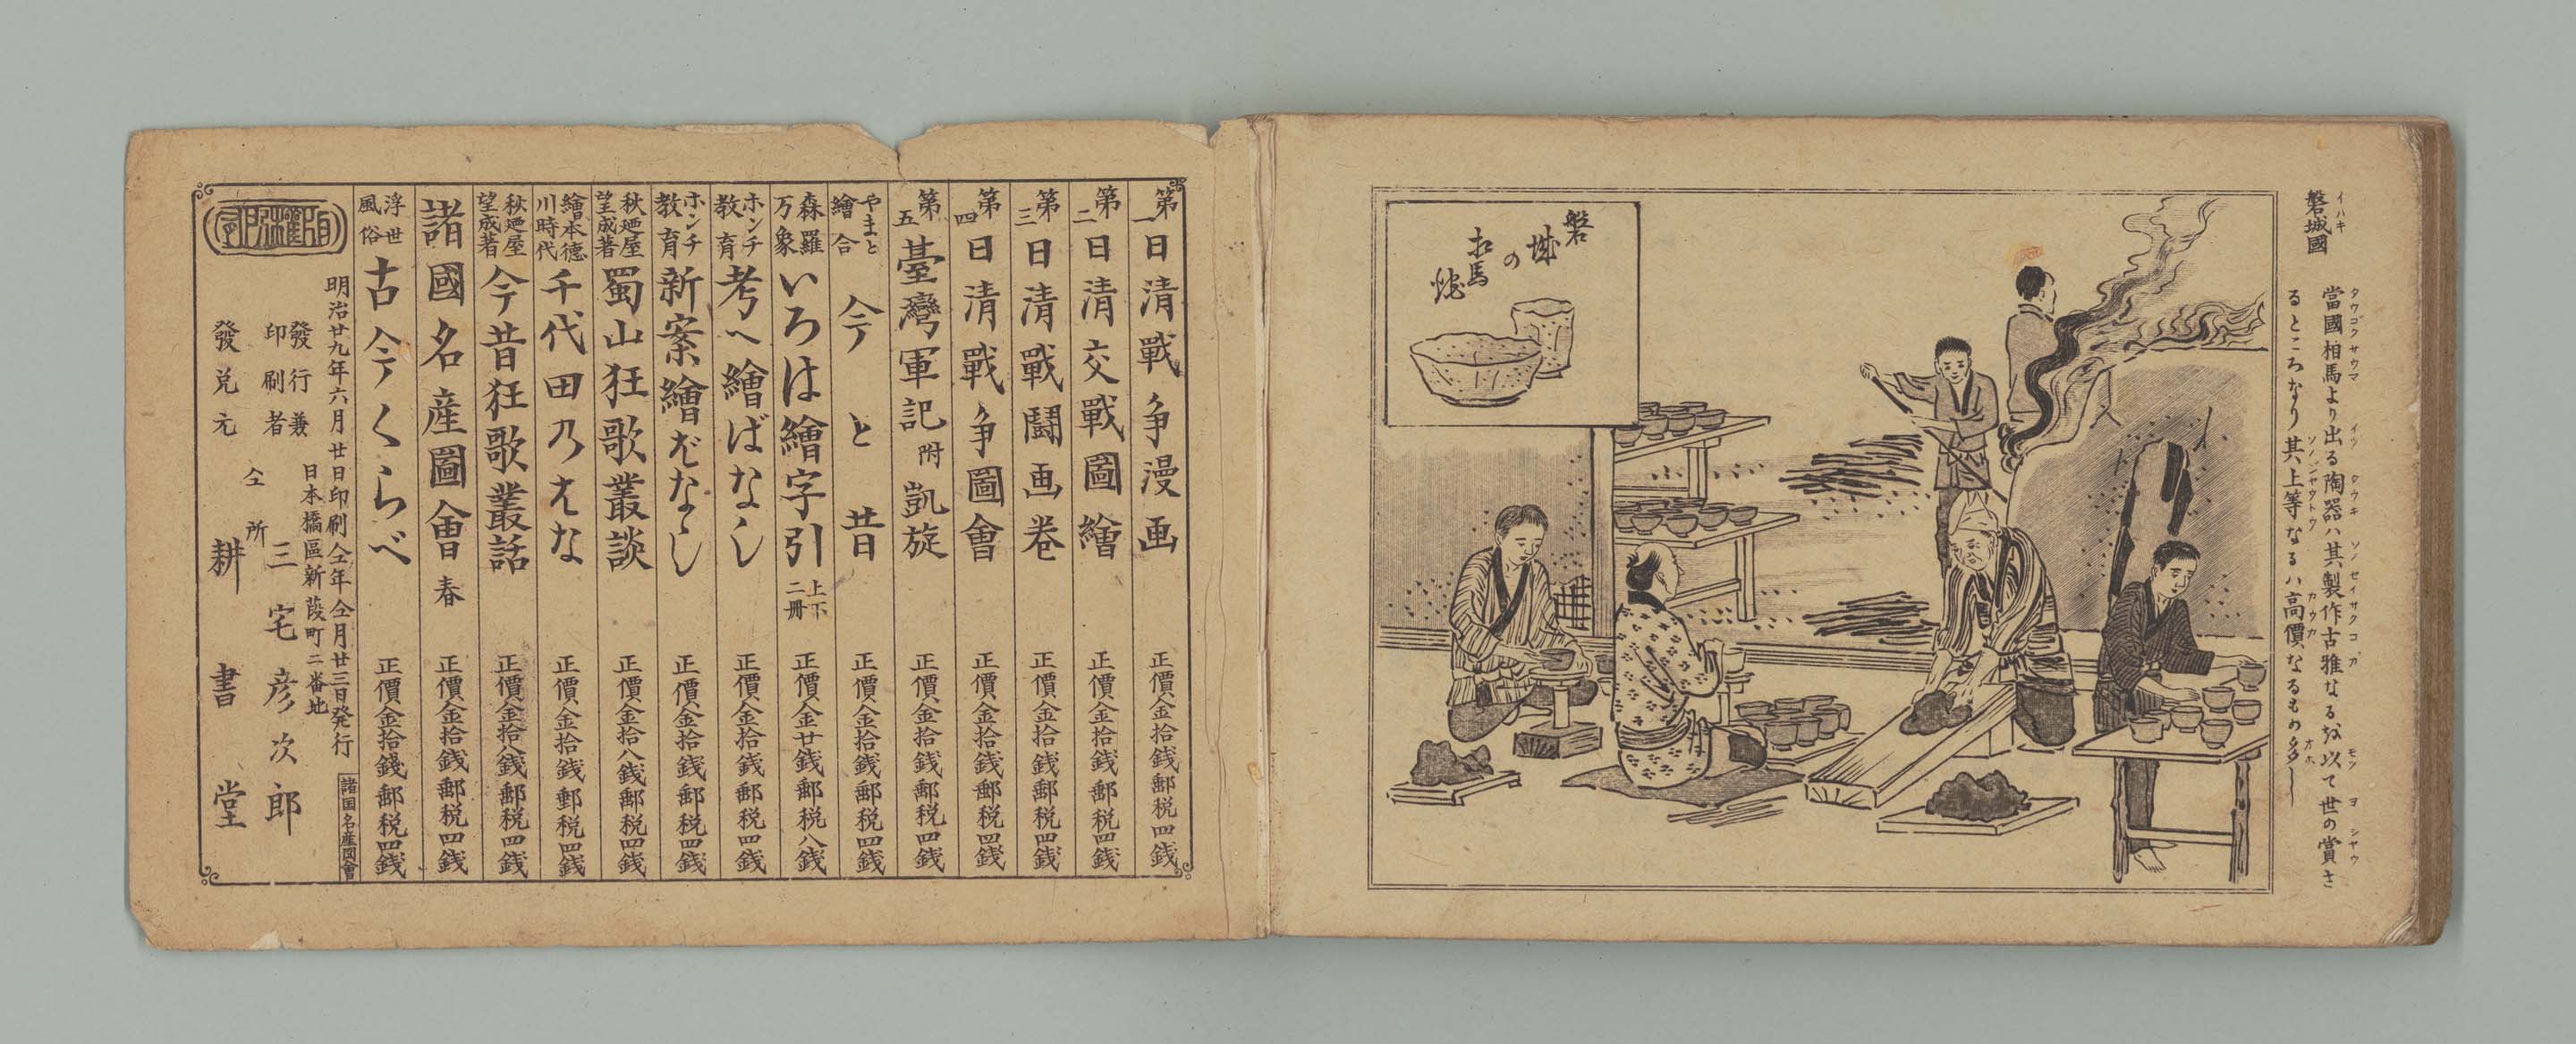 磐城國
當國相馬より出る陶器ハ其製作古雅なるを以て世の賞さ
るところなり其上等なるハ高價なるもの多し
イハキ
タウゴクサウマ
イヅ
タウキ
ソノセイサクコガ
モツ
ヨ
シヤウ
ソノジヤウトウ
カウカ
オホ
磐城の
相馬
焼
第一 日清戰争漫画 正價金拾銭郵税四銭
第二 日清交戰圖繪 正價金拾銭郵税四銭
第三 日清戰鬪画巻 正價金拾銭郵税四銭
第四 日清戰争圖會 正價金拾銭郵税四銭
第五 臺灣軍記 附凱旋 正價金拾銭郵税四銭
やまと繪合 今と昔 正價金拾銭郵税四銭
森羅万象 いろは繪字引 上下二冊 正價金廿銭郵税八銭
ホンチ教育 考へ繪ばなし 正價金拾銭郵税四銭
ホンチ教育 新案繪ばなし 正價金拾銭郵税四銭
秋廼屋望成著 蜀山狂歌叢談 正價金拾八銭郵税四銭
繪本徳川時代 千代田乃はな 正價金拾銭郵税四銭
秋廼屋望成著 今昔狂歌叢話 正價金拾八銭郵税四銭
諸國名産圖會 春 正價金拾銭郵税四銭
浮世風俗 古今くらべ 正價金拾錢郵税四銭
諸国名産図會
明治廿九年六月廿日印刷仝年仝月廿三日発行
日本橋區新葭町二番地
發行兼
印刷者 三宅彦次郎
仝所
發兌元 耕書堂